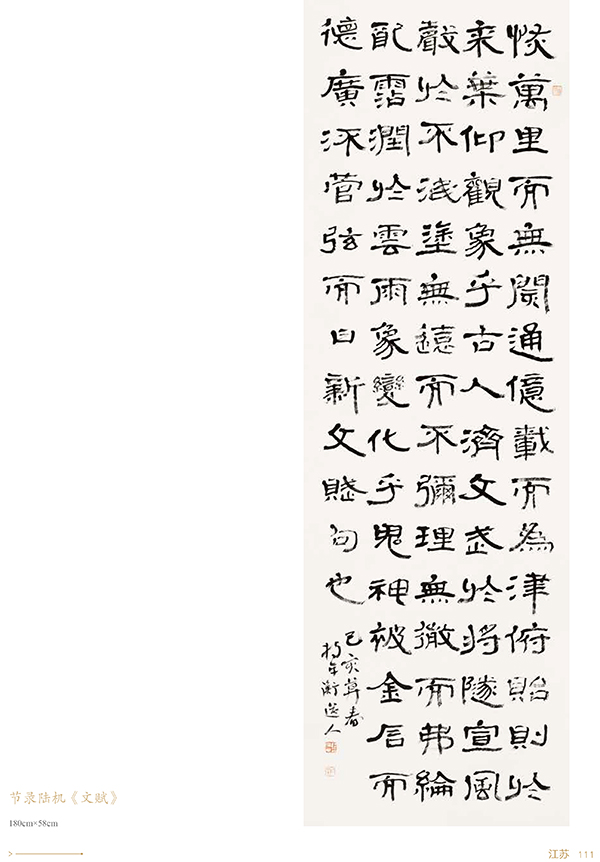 恢萬里而無閡通億載而為津俯貽則於
来葉仰觀象乎古人濟文武於將隧宣風
聲於不泯塗無遠而不彌理無微而弗綸
配霑潤於雲雨象變化乎鬼神被金石而
德廣流管弦而日新文賦句也
己亥草春
人
节录陆机《文赋》
180cm×58cm
江苏 111